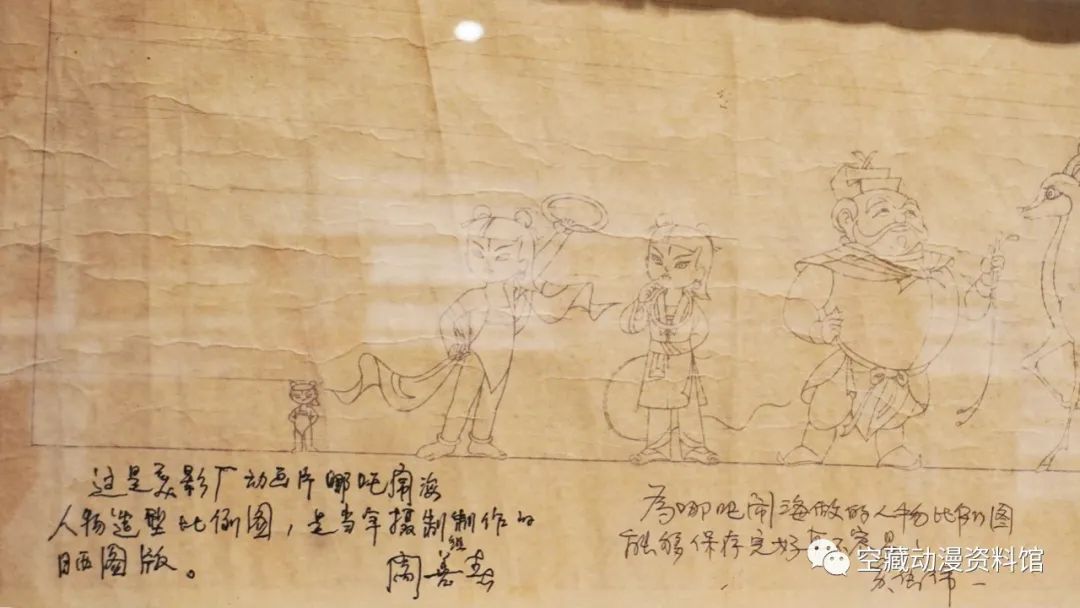 这是美影厂动画片哪吒闹海
人物造型比例图,是当年摄制组制作的
晒图版。
阎善春
为哪吒闹海做的人物比例图
能够保存完好
空藏动漫资料馆